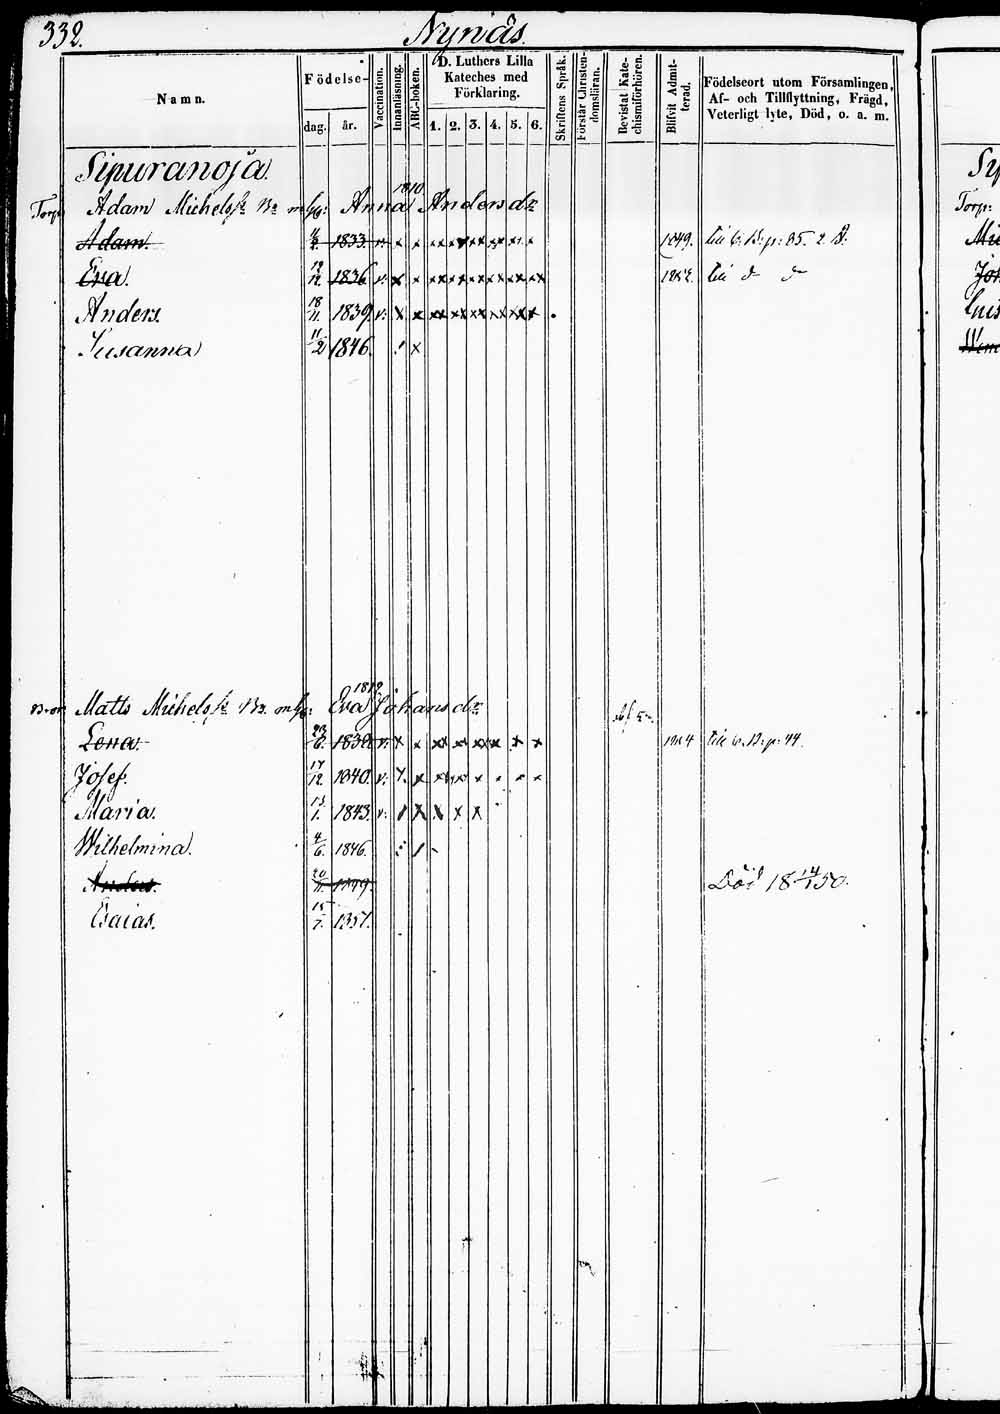 332.
Nynäs.
Namn.
Födelse-
dag. år.
Vaccination.
Innanläsning.
ABC-boken.
D. Luthers Lilla
Kateches med
Förklaring.
1. 2. 3. 4. 5. 6.
Skriftens Språk.
Förstår Christen-
domsläran.
Bevistat Kate-
chismiförhören.
Blifvit Admit-
terad.
Födelseort utom Församlingen,
Af- och Tillflyttning, Frägd,
Veterligt lyte, Död, o. a. m.
Sipuranoja
1810
Torp: Adam Michels Anna Anders dr
Adam. 1833. v. x x xx xx x xx xx x. x 1849. till C. B. p: 85. 2 B.
Eva. 12/12. 1836 v. x x xx xx xx xx xx xx till d d
Anders. 18/11. 1839 v. x x xx xx xx xx xx x
Susanna 11/2 1846. x
Matts Michels Eva Johans dr
Lena. 23/6. v. x x xx xx xx x x x till C. B. p. 44.
Josef. 17/12. 1840. v. x
Maria. 13/1. 1843. v. / x x x x
Wilhelmina. 4/6. 1846. /
Anders. 20/11. Död 18 14/1 50.
Esaias. 15/7. 1851.
Torp: